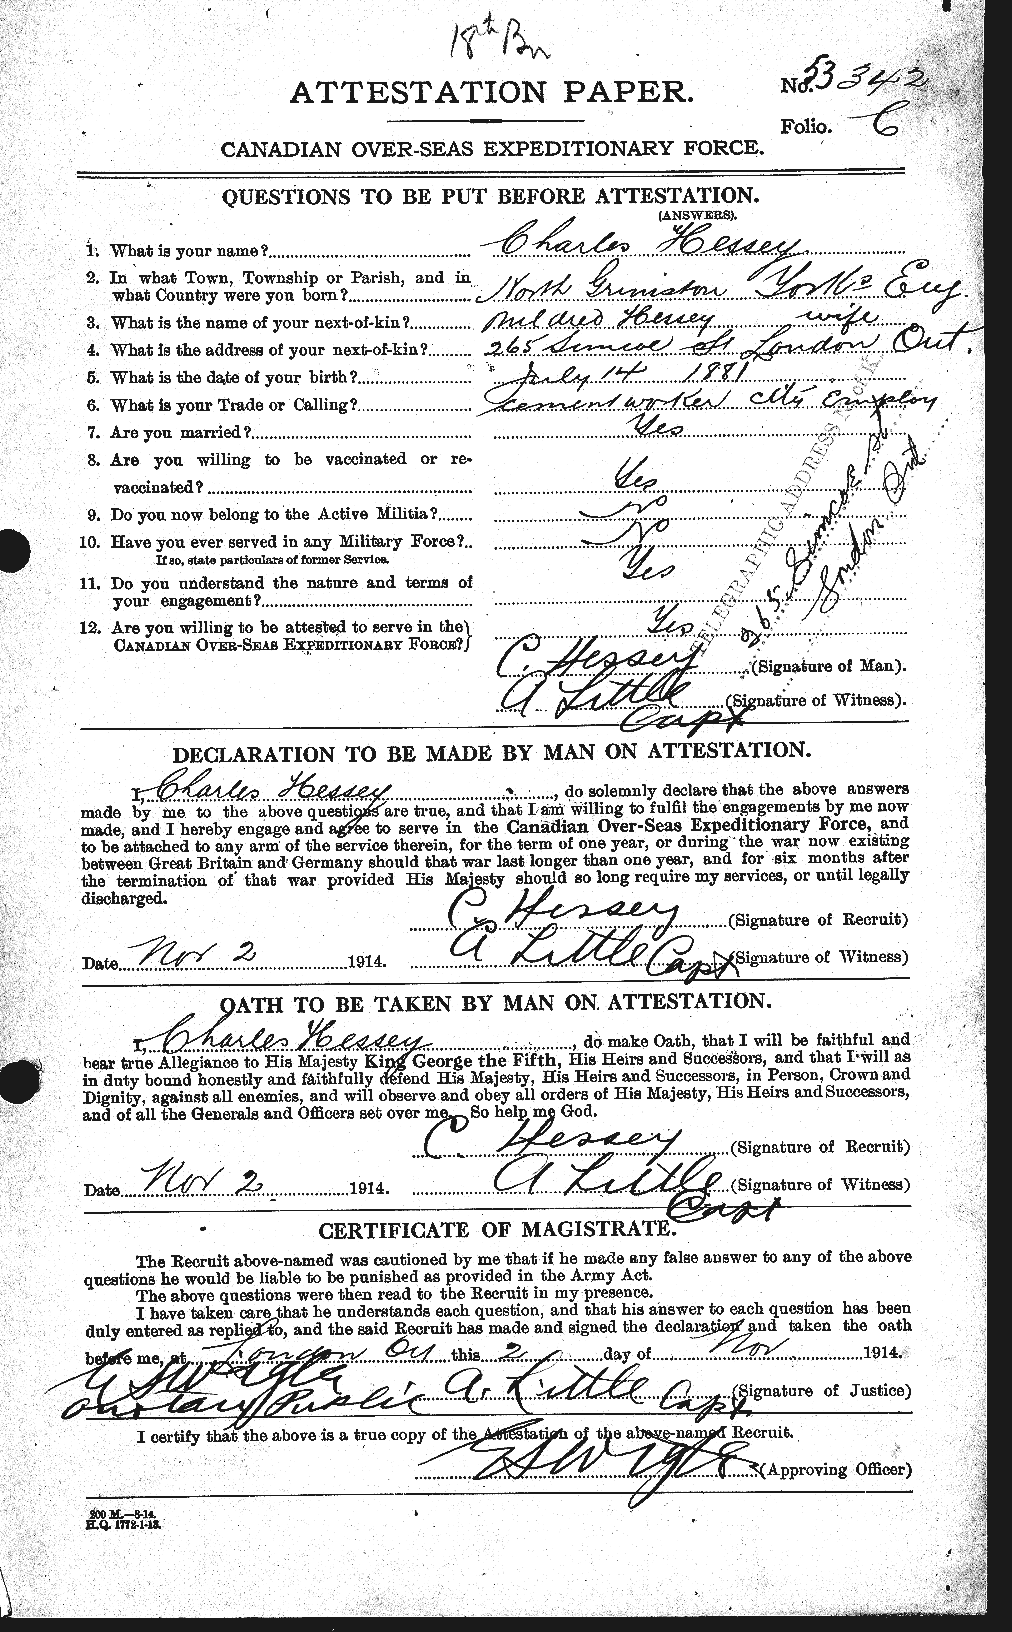 18th Bn
ATTESTATION PAPER.
No. 53342
Folio. C
CANADIAN OVER-SEAS EXPEDITIONARY FORCE.
QUESTIONS TO BE PUT BEFORE ATTESTATION.
(ANSWERS).
1. What is your name? Charles Hessey
2. In what Town, Township or Parish, and in
what Country were you born? North Grimston Yorks Eng.
3. What is the name of your next-of-kin? Mildred Hessey wife
4. What is the address of your next-of-kin? 265 Simcoe St London Ont.
5. What is the date of your birth? July 14 1881
6. What is your Trade or Calling? cement worker city employ
7. Are you married? Yes
8. Are you willing to be vaccinated or re-
vaccinated? Yes
9. Do you now belong to the Active Militia? No
10. Have you ever served in any Military Force? No
If so, state particulars of former Service.
11. Do you understand the nature and terms of
your engagement? Yes
12. Are you willing to be attested to serve in the
CANADIAN OVER-SEAS EXPEDITIONARY FORCE? Yes
TELEGRAPHIC ADDRESS
265 Simcoe St
London Ont
C. Hessey (Signature of Man).
A Little Capt (Signature of Witness).
DECLARATION TO BE MADE BY MAN ON ATTESTATION.
I, Charles Hessey, do solemnly declare that the above answers
made by me to the above questions are true, and that I am willing to fulfil the engagements by me now
made, and I hereby engage and agree to serve in the Canadian Over-Seas Expeditionary Force, and
to be attached to any arm of the service therein, for the term of one year, or during the war now existing
between Great Britain and Germany should that war last longer than one year, and for six months after
the termination of that war provided His Majesty should so long require my services, or until legally
discharged.
C. Hessey (Signature of Recruit)
Date Nov 2 1914. A Little Capt (Signature of Witness)
OATH TO BE TAKEN BY MAN ON ATTESTATION.
I, Charles Hessey, do make Oath, that I will be faithful and
bear true Allegiance to His Majesty King George the Fifth, His Heirs and Successors, and that I will as
in duty bound honestly and faithfully defend His Majesty, His Heirs and Successors, in Person, Crown and
Dignity, against all enemies, and will observe and obey all orders of His Majesty, His Heirs and Successors,
and of all the Generals and Officers set over me. So help me God.
C. Hessey (Signature of Recruit)
Date Nov 2 1914. A Little Capt (Signature of Witness)
CERTIFICATE OF MAGISTRATE.
The Recruit above-named was cautioned by me that if he made any false answer to any of the above
questions he would be liable to be punished as provided in the Army Act.
The above questions were then read to the Recruit in my presence.
I have taken care that he understands each question, and that his answer to each question has been
duly entered as replied to, and the said Recruit has made and signed the declaration and taken the oath
before me, at London On this 2 day of Nov 1914.
E S Wigle
a notary Public A. Little Capt. (Signature of Justice)
I certify that the above is a true copy of the Attestation of the above-named Recruit.
E S Wigle (Approving Officer)
200 M.—8-14.
H.Q. 1772-1-13.